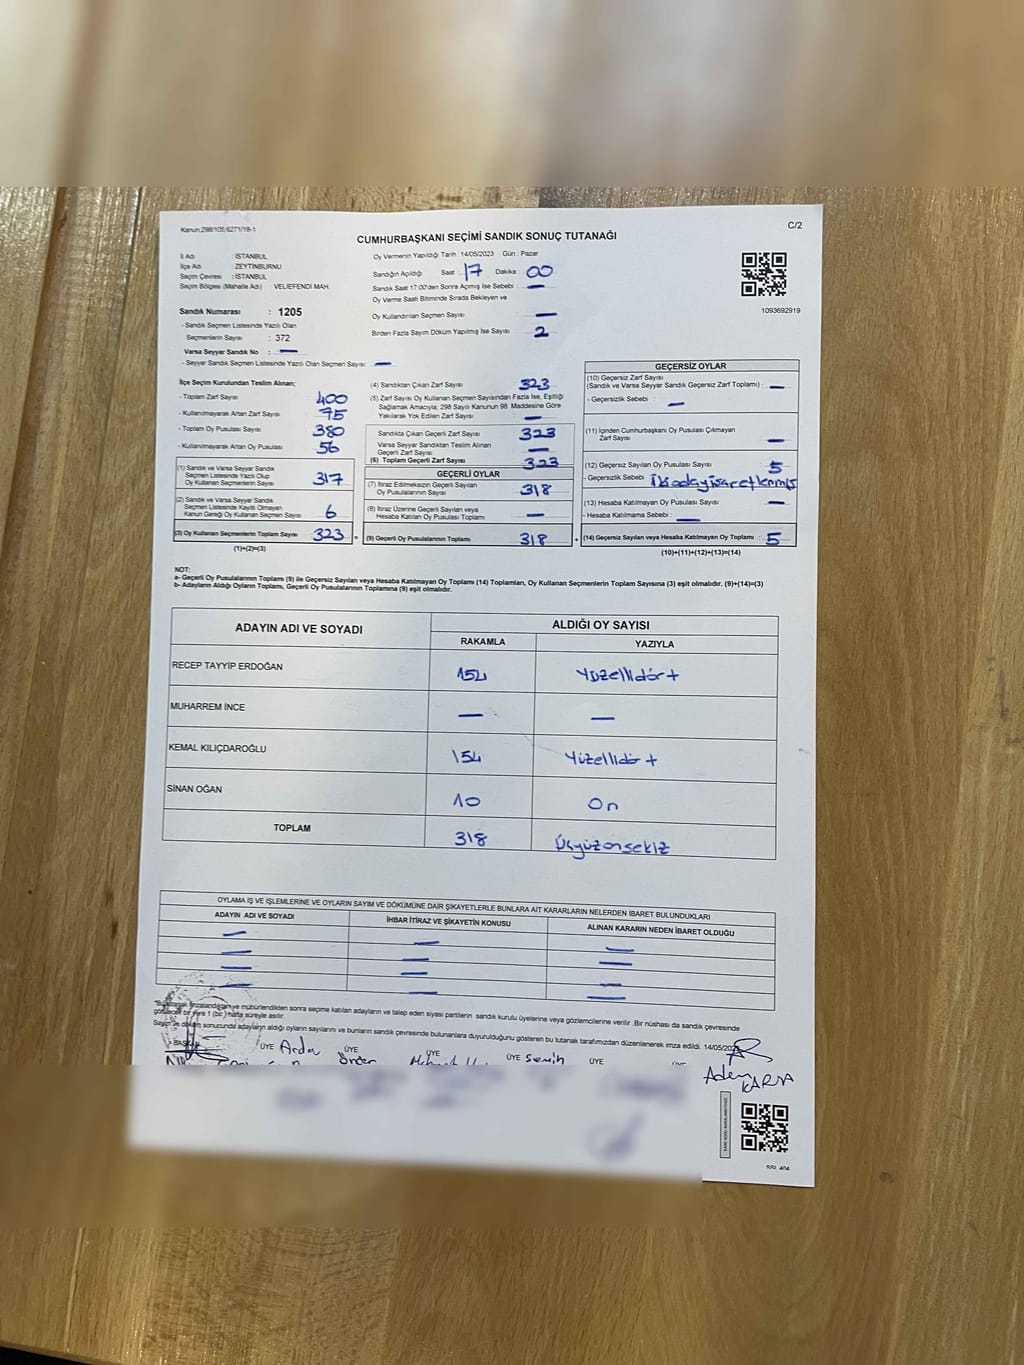 Kanun.298/105,6271/18-1
C/2
CUMHURBAŞKANI SEÇİMİ SANDIK SONUÇ TUTANAĞI
İl Adı : İSTANBUL
İlçe Adı : ZEYTİNBURNU
Seçim Çevresi : İSTANBUL
Seçim Bölgesi (Mahalle Adı) VELİEFENDİ MAH.
Oy Vermenin Yapıldığı Tarih : 14/05/2023 Gün : Pazar
Sandığın Açıldığı Saat : 17 Dakika : 00
Sandık Saat 17:00'den Sonra Açılmış İse Sebebi : —
Oy Verme Saati Bitiminde Sırada Bekleyen ve
Oy Kullandırılan Seçmen Sayısı : —
Birden Fazla Sayım Döküm Yapılmış İse Sayısı : 2
1093692919
Sandık Numarası : 1205
- Sandık Seçmen Listesinde Yazılı Olan
Seçmenlerin Sayısı : 372
Varsa Seyyar Sandık No : —
- Seyyar Sandık Seçmen Listesinde Yazılı Olan Seçmen Sayısı : —
İlçe Seçim Kurulundan Teslim Alınan;
- Toplam Zarf Sayısı : 400
- Kullanılmayarak Artan Zarf Sayısı : 75
- Toplam Oy Pusulası Sayısı : 380
- Kullanılmayarak Artan Oy Pusulası : 56
(1) Sandık ve Varsa Seyyar Sandık
Seçmen Listesinde Yazılı Olup
Oy Kullanan Seçmen Sayısı : 317
(2) Sandık ve Varsa Seyyar Sandık
Seçmen Listesinde Kayıtlı Olmayan
Kanun Gereği Oy Kullanan Seçmen Sayısı : 6
(3) Oy Kullanan Seçmenlerin Toplam Sayısı : 323
(1)+(2)=(3)
(4) Sandıktan Çıkan Zarf Sayısı : 323
(5) Zarf Sayısı Oy Kullanan Seçmen Sayısından Fazla İse, Eşitliği
Sağlamak Amacıyla; 298 Sayılı Kanunun 98. Maddesine Göre
Yakılarak Yok Edilen Zarf Sayısı : —
Sandıkta Çıkan Geçerli Zarf Sayısı : 323
Varsa Seyyar Sandıktan Teslim Alınan
Geçerli Zarf Sayısı : —
(6) Toplam Geçerli Zarf Sayısı : 323
GEÇERLİ OYLAR
(7) İtiraz Edilmeksizin Geçerli Sayılan
Oy Pusulalarının Sayısı : 318
(8) İtiraz Üzerine Geçerli Sayılan veya
Hesaba Katılan Oy Pusulası Toplamı : —
(9) Geçerli Oy Pusulalarının Toplamı : 318
GEÇERSİZ OYLAR
(10) Geçersiz Zarf Sayısı
(Sandık ve Varsa Seyyar Sandık Geçersiz Zarf Toplamı) : —
- Geçersizlik Sebebi : —
(11) İçinden Cumhurbaşkanı Oy Pusulası Çıkmayan
Zarf Sayısı : —
(12) Geçersiz Sayılan Oy Pusulası Sayısı : 5
- Geçersizlik Sebebi : iki aday işaretlenmiş
(13) Hesaba Katılmayan Oy Pusulası Sayısı : —
- Hesaba Katılmama Sebebi : —
(14) Geçersiz Sayılan veya Hesaba Katılmayan Oy Toplamı : 5
(10)+(11)+(12)+(13)=(14)
NOT:
a- Geçerli Oy Pusulalarının Toplamı (9) ile Geçersiz Sayılan veya Hesaba Katılmayan Oy Toplamı (14) Toplamları, Oy Kullanan Seçmenlerin Toplam Sayısına (3) eşit olmalıdır. (9)+(14)=(3)
b- Adayların Aldığı Oyların Toplamı, Geçerli Oy Pusulalarının Toplamına (9) eşit olmalıdır.
ADAYIN ADI VE SOYADI ALDIĞI OY SAYISI
RAKAMLA YAZIYLA
RECEP TAYYİP ERDOĞAN 154 Yüzellidört
MUHARREM İNCE — —
KEMAL KILIÇDAROĞLU 154 Yüzellidört
SİNAN OĞAN 10 On
TOPLAM 318 Üçyüzonsekiz
OYLAMA İŞ VE İŞLEMLERİNE VE OYLARIN SAYIM VE DÖKÜMÜNE DAİR ŞİKAYETLERLE BUNLARA AİT KARARLARIN NELERDEN İBARET BULUNDUKLARI
ADAYIN ADI VE SOYADI İHBAR İTİRAZ VE ŞİKAYETİN KONUSU ALINAN KARARIN NEDEN İBARET OLDUĞU
— — —
— — —
— — —
— — —
imzalandıktan ve mühürlendikten sonra seçime katılan adayların ve talep eden siyasi partilerin sandık kurulu üyelerine veya gözlemcilerine verilir. Bir nüshası da sandık çevresinde
görülecek bir yere 1 (bir) hafta süreyle asılır.
Sayım ve döküm sonucunda adayların aldığı oyların sayılarını ve bunların sandık çevresinde bulunanlara duyurulduğunu gösteren bu tutanak tarafımızdan düzenlenerek imza edildi. 14/05/2023
BAŞKAN ÜYE Arda ÜYE Önder ÜYE ÜYE Semih ÜYE
Adem
KARA